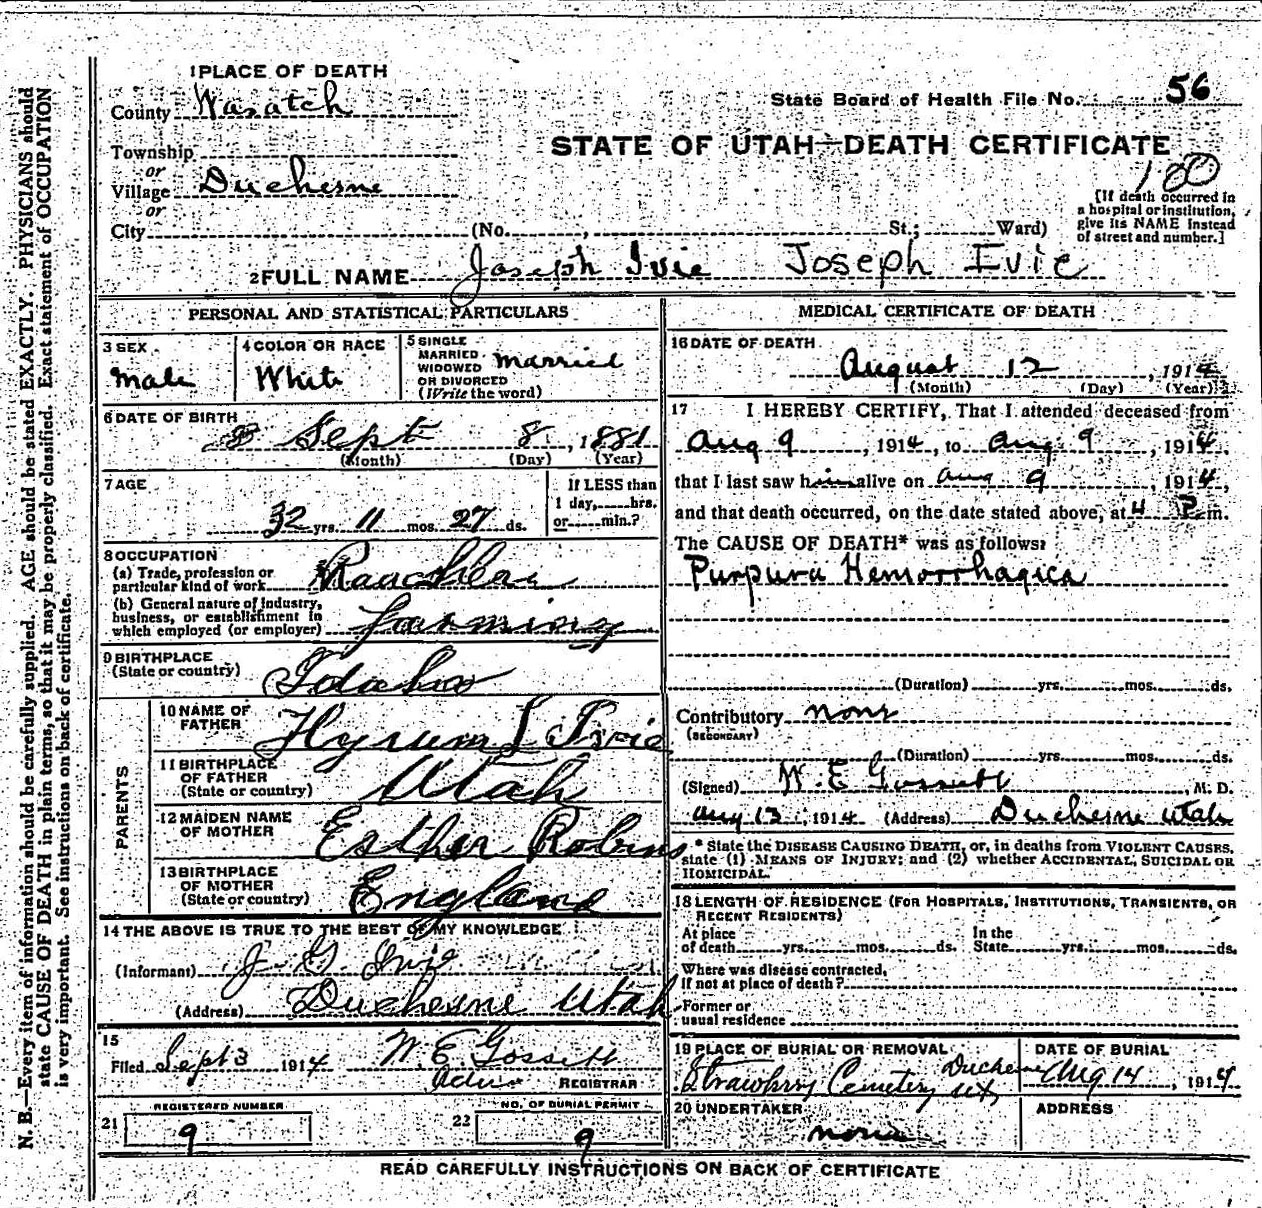 1 PLACE OF DEATH
County Wasatch
State Board of Health File No. 56
STATE OF UTAH—DEATH CERTIFICATE
Township
or
Village Duchesne
or
City (No. , St.; Ward)
180
[If death occurred in
a hospital or institution,
give its NAME instead
of street and number.]
2 FULL NAME Joseph Ivie Joseph Ivie
PERSONAL AND STATISTICAL PARTICULARS
3 SEX
Male
4 COLOR OR RACE
White
5 SINGLE
MARRIED
WIDOWED
OR DIVORCED
(Write the word)
Married
6 DATE OF BIRTH
Sept 8, 1881
(Month) (Day) (Year)
7 AGE
32 yrs. 11 mos. 27 ds.
If LESS than
1 day, hrs.
or min.?
8 OCCUPATION
(a) Trade, profession or
particular kind of work
(b) General nature of industry,
business, or establishment in
which employed (or employer) farming
9 BIRTHPLACE
(State or country) Idaho
PARENTS
10 NAME OF
FATHER Hyrum L Ivie
11 BIRTHPLACE
OF FATHER
(State or country) Utah
12 MAIDEN NAME
OF MOTHER Esther Robins
13 BIRTHPLACE
OF MOTHER
(State or country) England
14 THE ABOVE IS TRUE TO THE BEST OF MY KNOWLEDGE
(Informant) J. G. Ivie
(Address) Duchesne Utah
15
Filed Sept 3 1914 W. E Gossett
REGISTRAR
REGISTERED NUMBER
21 9
NO. OF BURIAL PERMIT
22 9
MEDICAL CERTIFICATE OF DEATH
16 DATE OF DEATH
August 12, 1914
(Month) (Day) (Year)
17 I HEREBY CERTIFY, That I attended deceased from
Aug 9, 1914, to Aug 9, 1914,
that I last saw him alive on Aug 9, 1914,
and that death occurred, on the date stated above, at 4 P.m.
The CAUSE OF DEATH* was as follows:
Purpura Hemorrhagica
(Duration) yrs. mos. ds.
Contributory none
(SECONDARY)
(Duration) yrs. mos. ds.
(Signed) W. E Gossett, M. D.
Aug 13, 1914 (Address) Duchesne Utah
* State the DISEASE CAUSING DEATH, or, in deaths from VIOLENT CAUSES,
state (1) MEANS OF INJURY; and (2) whether ACCIDENTAL, SUICIDAL OR
HOMICIDAL.
18 LENGTH OF RESIDENCE (FOR HOSPITALS, INSTITUTIONS, TRANSIENTS, OR
RECENT RESIDENTS)
At place
of death yrs. mos. ds.
In the
State yrs. mos. ds.
Where was disease contracted,
If not at place of death?
Former or
usual residence
19 PLACE OF BURIAL OR REMOVAL
Duchesne
Strawbrry Cemetery ut,
DATE OF BURIAL
Aug 14, 1914
20 UNDERTAKER
none
ADDRESS
READ CAREFULLY INSTRUCTIONS ON BACK OF CERTIFICATE
N. B.—Every item of information should be carefully supplied. AGE should be stated EXACTLY. PHYSICIANS should
state CAUSE OF DEATH in plain terms, so that it may be properly classified. Exact statement of OCCUPATION
is very important. See instructions on back of certificate.